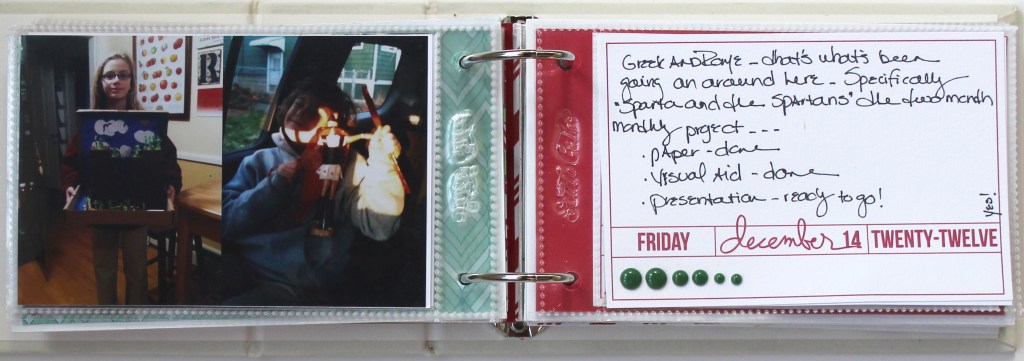 Greek AND Rome - that's what's been
going on around here - Specifically
"Sparta and the Spartans" the two month
monthly project ---
· paper - done
· Visual Aid - done
· presentation - ready to go!
yes!
FRIDAY december 14 TWENTY-TWELVE